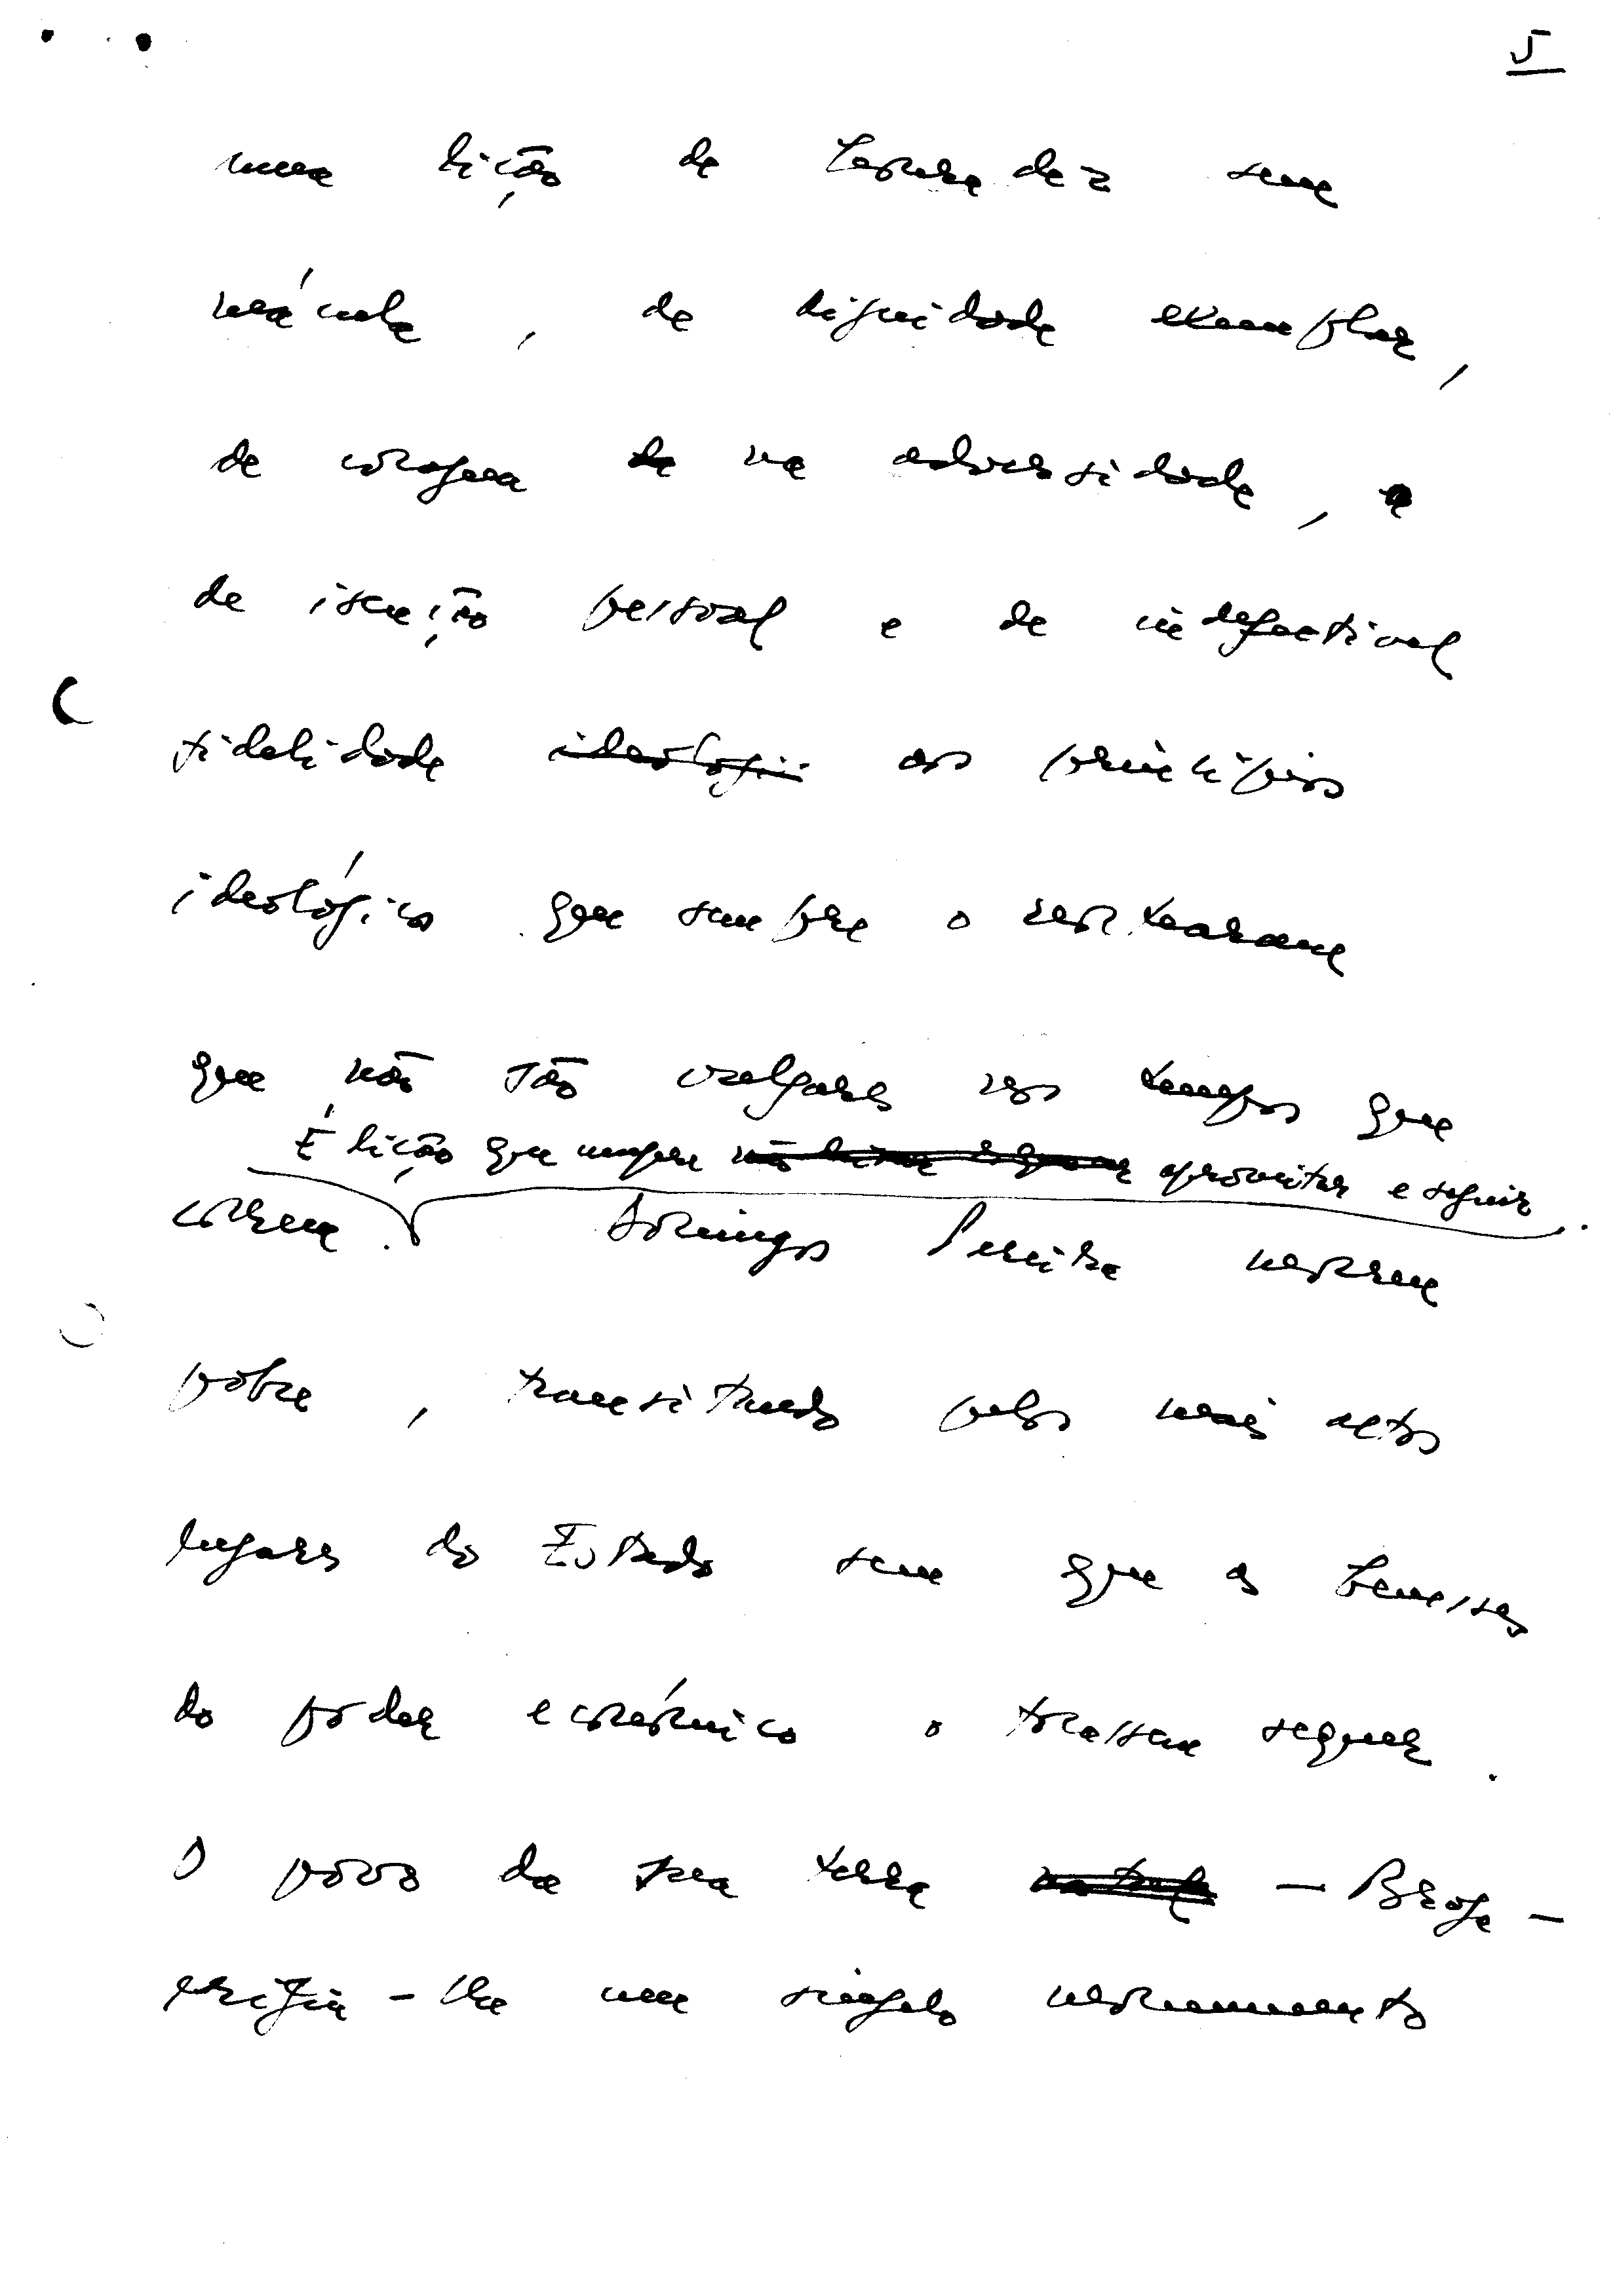 5
uma lição de honradez sem
mácula, de dignidade exemplar,
de coragem de na adversidade,
de isenção pessoal e de indefectível
fidelidade aos princípios
ideológicos que sempre o nortearam
que não são vulgares nos tempos que
É lição que cumpre aproveitar e seguir.
correm. Domingos Pereira morreu
pobre, transitando pelos mais altos
lugares do Estado sem que as benesses
do poder económico o tocassem sequer.
O povo da sua terra — Braga —
erigiu-lhe um singelo monumento